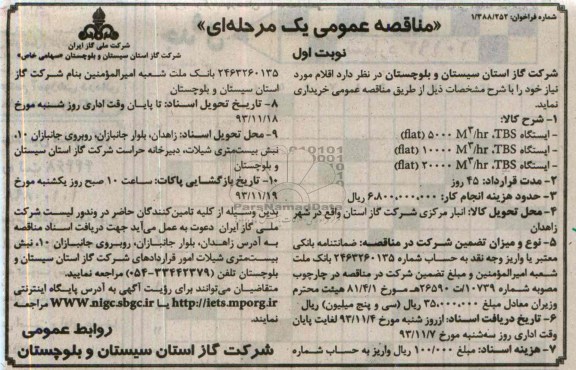 شماره فراخوان: ۱/۳۸۸/۲۵۲
«مناقصه عمومی یک مرحله‌ای»
نوبت اول
شرکت ملی گاز ایران
شرکت گاز استان سیستان و بلوچستان «سهامی خاص»
شرکت گاز استان سیستان و بلوچستان در نظر دارد اقلام مورد
نیاز خود را با شرح مشخصات ذیل از طریق مناقصه عمومی خریداری
نماید.
۱- شرح کالا:
- ایستگاه TBS، ۵۰۰۰ M³/hr (flat)
- ایستگاه TBS، ۱۰۰۰۰ M³/hr (flat)
- ایستگاه TBS، ۲۰۰۰۰ M³/hr (flat)
۲- مدت قرارداد: ۴۵ روز
۳- حدود هزینه انجام کار: ۶،۸۰۰،۰۰۰،۰۰۰ ریال
۴- محل تحویل کالا: انبار مرکزی شرکت گاز استان واقع در شهر
زاهدان
۵- نوع و میزان تضمین شرکت در مناقصه: ضمانتنامه بانکی
معتبر یا واریز وجه نقد به حساب شماره ۲۴۶۳۲۶۰۱۳۵ بانک ملت
شعبه امیرالمؤمنین و مبلغ تضمین شرکت در مناقصه در چارچوب
مصوبه شماره ۱۰۷۳۹/ت ۲۶۵۹۰هـ مورخ ۸۱/۴/۱ هیئت محترم
وزیران معادل مبلغ ۳۵،۰۰۰،۰۰۰ ریال (سی و پنج میلیون) ریال
۶- تاریخ دریافت اسناد: از روز شنبه مورخ ۹۳/۱۱/۴ لغایت پایان
وقت اداری روز سه‌شنبه مورخ ۹۳/۱۱/۷
۷- هزینه اسناد: مبلغ ۱۰۰/۰۰۰ ریال واریز به حساب شماره
۲۴۶۳۲۶۰۱۳۵ بانک ملت شعبه امیرالمؤمنین بنام شرکت گاز
استان سیستان و بلوچستان
۸- تاریخ تحویل اسناد: تا پایان وقت اداری روز شنبه مورخ
۹۳/۱۱/۱۸
۹- محل تحویل اسناد: زاهدان، بلوار جانبازان، روبروی جانبازان ۱۰،
نبش بیست‌متری شیلات، دبیرخانه حراست شرکت گاز استان سیستان
و بلوچستان
۱۰- تاریخ بازگشایی پاکات: ساعت ۱۰ صبح روز یکشنبه مورخ
۹۳/۱۱/۱۹
بدین وسیله از کلیه تامین‌کنندگان حاضر در وندور لیست شرکت
ملی گاز ایران دعوت به عمل می‌آید جهت دریافت اسناد مناقصه
به آدرس زاهدان، بلوار جانبازان، روبروی جانبازان ۱۰، نبش
بیست‌متری شیلات امور قراردادهای شرکت گاز استان سیستان و
بلوچستان تلفن (۳۳۴۴۲۳۷۹-۰۵۴) مراجعه نمایید.
متقاضیان می‌توانند برای رؤیت آگهی به آدرس پایگاه اینترنتی
http://iets.mporg.ir یا WWW.nigc.sbgc.ir مراجعه
نمایند.
روابط عمومی
شرکت گاز استان سیستان و بلوچستان
ParsNamadData